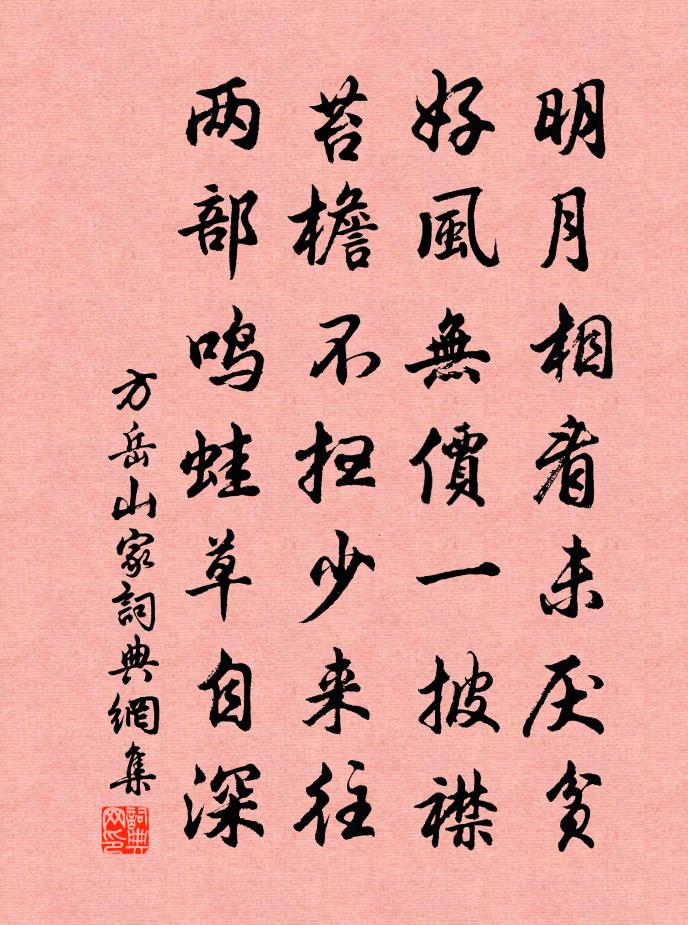 明月相看未厌贫
好風無價一披襟
苔檐不扫少来往
两部鸣蛙草自深
方岳山家詞典網集
詞典网印